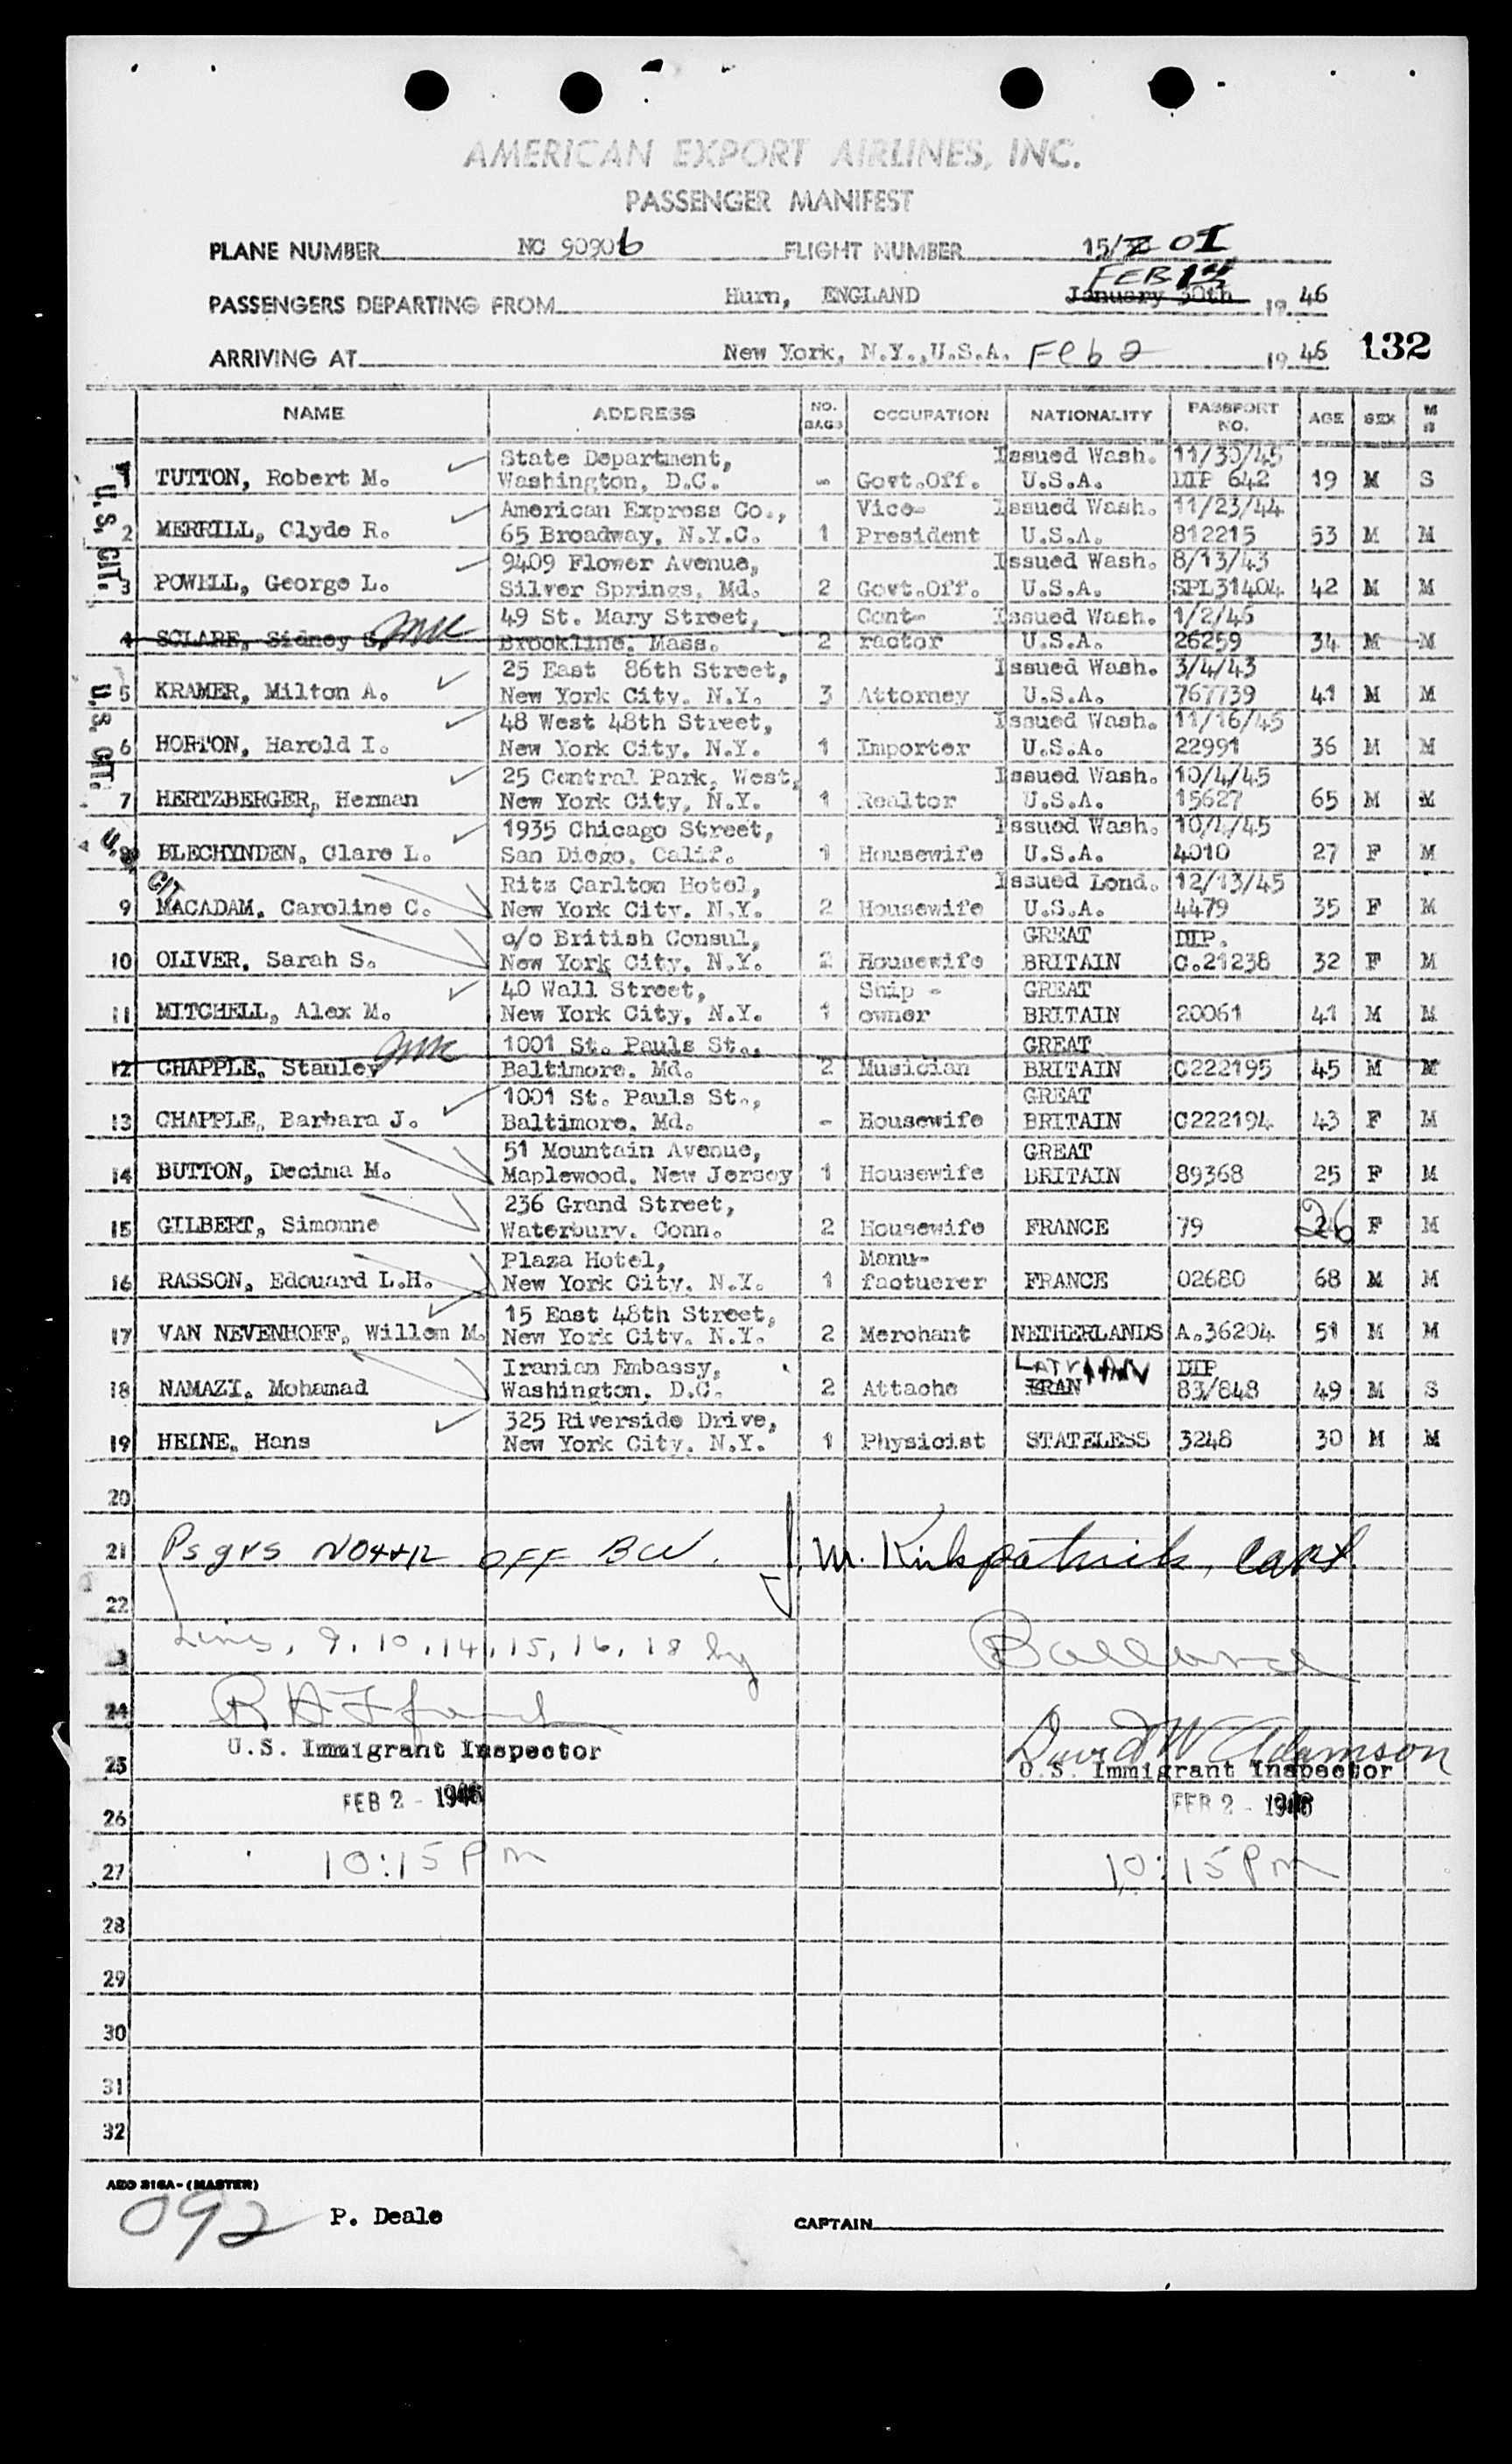 AMERICAN EXPORT AIRLINES, INC.
PASSENGER MANIFEST
PLANE NUMBER NC 90906 FLIGHT NUMBER 15/ 01
FEB 1
PASSENGERS DEPARTING FROM Hurn, ENGLAND January 30th 19 46
ARRIVING AT New York, N.Y., U.S.A. Feb 2 19 46 132
NAME ADDRESS NO. BAGS OCCUPATION NATIONALITY PASSPORT NO. AGE SEX M S
U.S. CIT.
State Department, Issued Wash. 11/30/45
1 TUTTON, Robert M. Washington, D.C. - Govt.Off. U.S.A. DIP 642 19 M S
American Express Co., Vice- Issued Wash. 11/23/44
2 MERRILL, Clyde R. 65 Broadway, N.Y.C. 1 President U.S.A. 812215 53 M M
9409 Flower Avenue, Issued Wash. 8/13/43
3 POWELL, George L. Silver Springs, Md. 2 Govt.Off. U.S.A. SPL31404 42 M M
49 St. Mary Street, Cont- Issued Wash. 1/2/46
4 SCLARE, Sidney S. JMK Brookline, Mass. 2 ractor U.S.A. 26259 34 M M
U.S. CIT.
25 East 86th Street, Issued Wash. 3/4/43
5 KRAMER, Milton A. New York City, N.Y. 3 Attorney U.S.A. 767739 41 M M
48 West 48th Street, Issued Wash. 11/16/45
6 HORTON, Harold I. New York City, N.Y. 1 Importer U.S.A. 22991 36 M M
25 Central Park, West, Issued Wash. 10/4/45
7 HERTZBERGER, Herman New York City, N.Y. 1 Realtor U.S.A. 15627 65 M M
U.S. CIT.
1935 Chicago Street, Issued Wash. 10/4/45
8 BLECHYNDEN, Clare L. San Diego, Calif. 1 Housewife U.S.A. 4010 27 F M
Ritz Carlton Hotel, Issued Lond. 12/13/45
9 MACADAM, Caroline C. New York City, N.Y. 2 Housewife U.S.A. 4479 35 F M
c/o British Consul, GREAT DIP.
10 OLIVER, Sarah S. New York City, N.Y. 2 Housewife BRITAIN C.21238 32 F M
40 Wall Street, Ship - GREAT
11 MITCHELL, Alex M. New York City, N.Y. 1 owner BRITAIN 20061 41 M M
1001 St. Pauls St., GREAT
12 CHAPPLE, Stanley JMK Baltimore, Md. 2 Musician BRITAIN C222195 45 M M
1001 St. Pauls St., GREAT
13 CHAPPLE, Barbara J. Baltimore, Md. - Housewife BRITAIN C222194 43 F M
51 Mountain Avenue, GREAT
14 BUTTON, Decima M. Maplewood, New Jersey 1 Housewife BRITAIN 89368 25 F M
236 Grand Street,
15 GILBERT, Simonne Waterbury, Conn. 2 Housewife FRANCE 79 26 F M
Plaza Hotel, Manu-
16 RASSON, Edouard L.H. New York City, N.Y. 1 factuerer FRANCE 02680 68 M M
15 East 48th Street,
17 VAN NEVENHOFF, Willem M. New York City, N.Y. 2 Merchant NETHERLANDS A.36204 51 M M
Iranian Embassy, LATVIAN DIP
18 NAMAZI, Mohamad Washington, D.C. 2 Attache IRAN 83/848 49 M S
325 Riverside Drive,
19 HEINE, Hans New York City, N.Y. 1 Physicist STATELESS 3248 30 M M
20
21 Psgrs NO 4 + 12 OFF BW. J. M. Kirkpatrick, Capt.
22
3 Lines, 9, 10, 14, 15, 16, 18 by
24 David W Adamson
U.S. Immigrant Inspector
25 U.S. Immigrant Inspector
FEB 2 - 1946 FEB 2 - 1946
26
27 10:15 Pm 10:15 Pm
28
29
30
31
32
AEO 216A-(MASTER)
092 P. Deale CAPTAIN